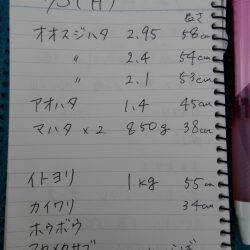 (月)
長さ
オオスジハタ 2.95 58cm
〃 2.4 54cm
〃 2.1 53cm
アオハタ 1.4 45cm
マハタ×2 850g 38cm
イトヨリ 1kg 55cm
カイワリ 34cm
ホウボウ